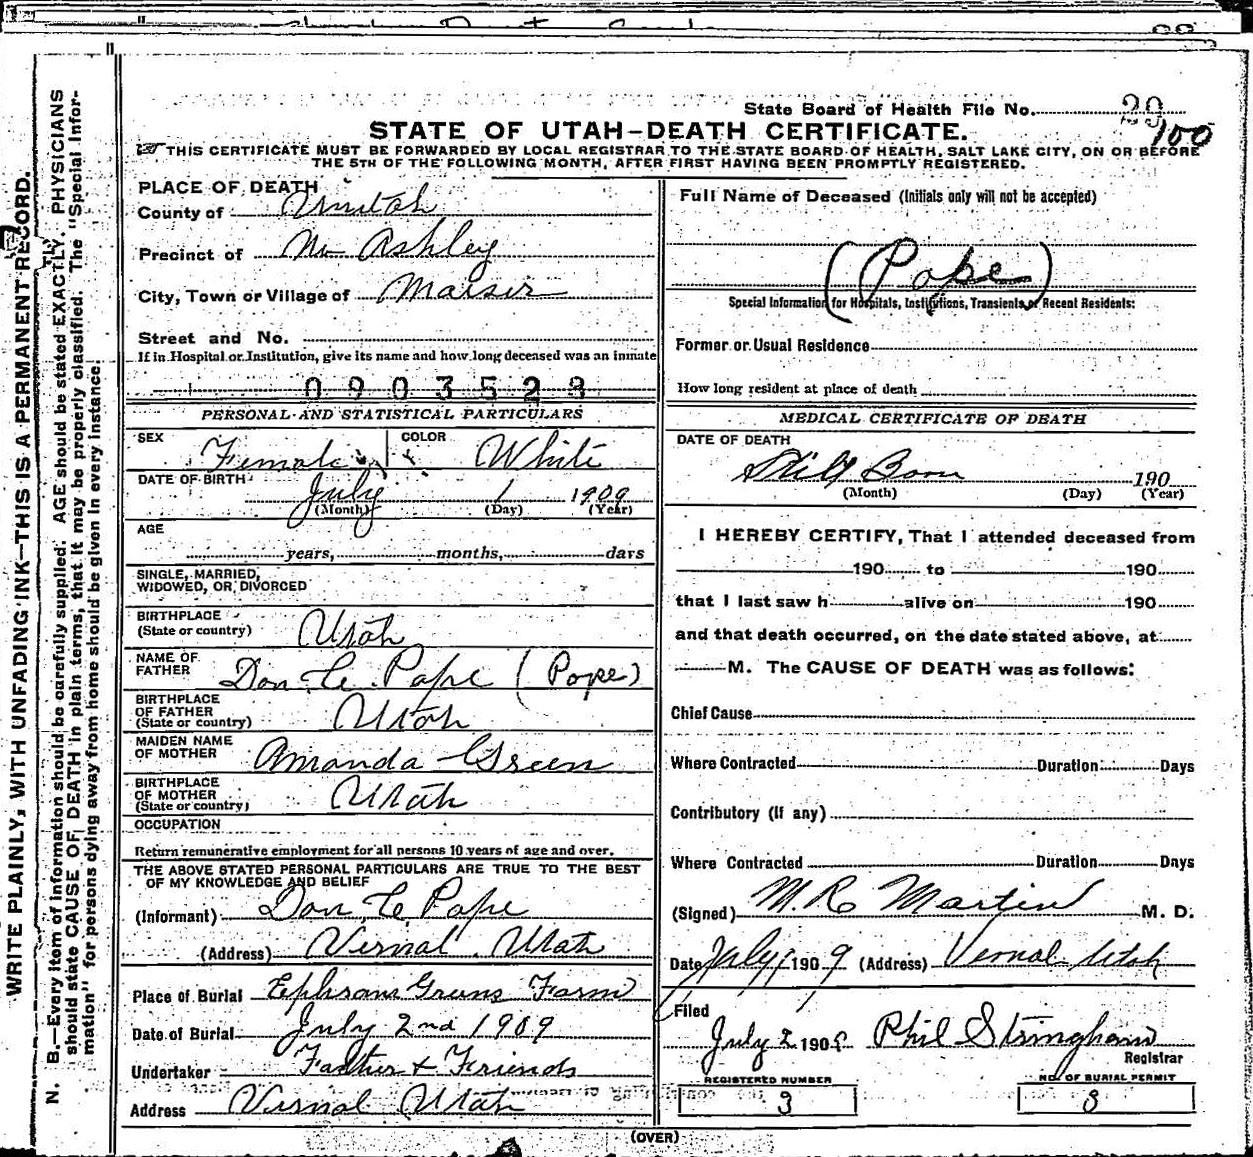 State Board of Health File No. 20
100
STATE OF UTAH-DEATH CERTIFICATE.
THIS CERTIFICATE MUST BE FORWARDED BY LOCAL REGISTRAR TO THE STATE BOARD OF HEALTH, SALT LAKE CITY, ON OR BEFORE
THE 5TH OF THE FOLLOWING MONTH, AFTER FIRST HAVING BEEN PROMPTLY REGISTERED.
WRITE PLAINLY, WITH UNFADING INK—THIS IS A PERMANENT RECORD.
N. B.—Every item of information should be carefully supplied. AGE should be stated EXACTLY. PHYSICIANS
should state CAUSE OF DEATH in plain terms, that it may be properly classified. The "Special Infor-
mation" for persons dying away from home should be given in every instance.
PLACE OF DEATH
County of Uintah
Precinct of Ashley
City, Town or Village of Maeser
Street and No.
If in Hospital or Institution, give its name and how long deceased was an inmate
0903528
PERSONAL AND STATISTICAL PARTICULARS
SEX Female COLOR White
DATE OF BIRTH July 1 1909
(Month) (Day) (Year)
AGE
years, months, days
SINGLE, MARRIED,
WIDOWED, OR DIVORCED
BIRTHPLACE
(State or country) Utah
NAME OF
FATHER Don C. Pape (Pope)
BIRTHPLACE
OF FATHER
(State or country) Utah
MAIDEN NAME
OF MOTHER Amanda Green
BIRTHPLACE
OF MOTHER
(State or country) Utah
OCCUPATION
Return remunerative employment for all persons 10 years of age and over.
THE ABOVE STATED PERSONAL PARTICULARS ARE TRUE TO THE BEST
OF MY KNOWLEDGE AND BELIEF
(Informant) Don C Pape
(Address) Vernal, Utah
Place of Burial Ephram Greens Farm
Date of Burial July 2nd 1909
Undertaker Father & Friends
Address Vernal Utah
Full Name of Deceased (Initials only will not be accepted)
(Pope)
Special Information for Hospitals, Institutions, Transients or Recent Residents:
Former or Usual Residence
How long resident at place of death
MEDICAL CERTIFICATE OF DEATH
DATE OF DEATH
Still Born 190
(Month) (Day) (Year)
I HEREBY CERTIFY, That I attended deceased from
190 to 190
that I last saw h alive on 190
and that death occurred, on the date stated above, at
M. The CAUSE OF DEATH was as follows:
Chief Cause
Where Contracted Duration Days
Contributory (If any)
Where Contracted Duration Days
(Signed) M. R. Martin M. D.
Date July 1, 1909 (Address) Vernal Utah
Filed
July 2 1909 Phil Stringham
Registrar
REGISTERED NUMBER
3
NO. OF BURIAL PERMIT
3
(OVER)